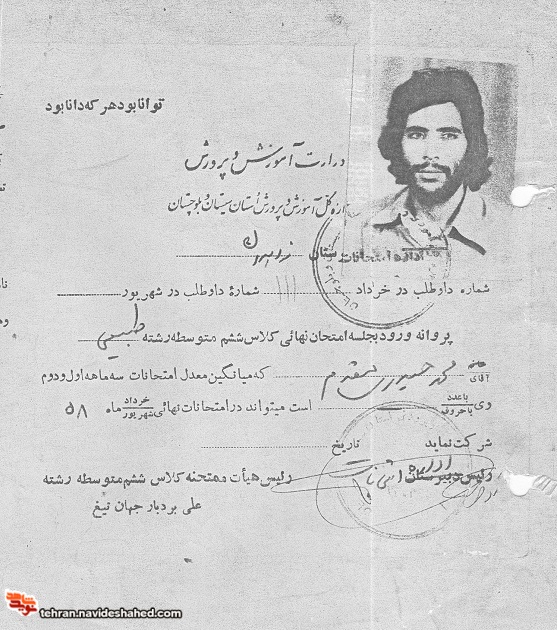 توانا بود هر که دانا بود
وزارت آموزش و پرورش
اداره کل آموزش و پرورش استان سیستان و بلوچستان
اداره امتحانات ستان
شماره داوطلب در خرداد ۱۱۱ شمارهٔ داوطلب در شهریور
پروانه ورود بجلسه امتحان نهائی کلاس ششم متوسطه رشته طبیعی
خانم آقای محمد حیدری مقدم که میانگین معدل امتحانات سه ماهه اول و دوم
وی باعدد باحروف است میتواند در امتحانات نهائی خرداد شهریور ماه ۵۸
شرکت نماید تاریخ
رئیس دبیرستان رئیس هیأت ممتحنه کلاس ششم متوسطه رشته
علی بردبار جهان تیغ
نوید شاهد
tehran.navideshahed.com